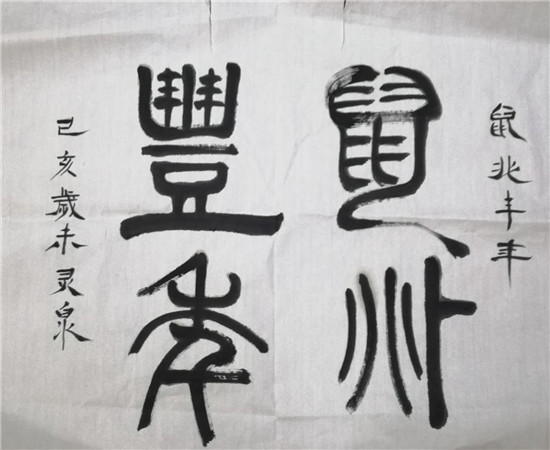 鼠兆丰年
鼠兆
豐年
己亥歲末灵泉